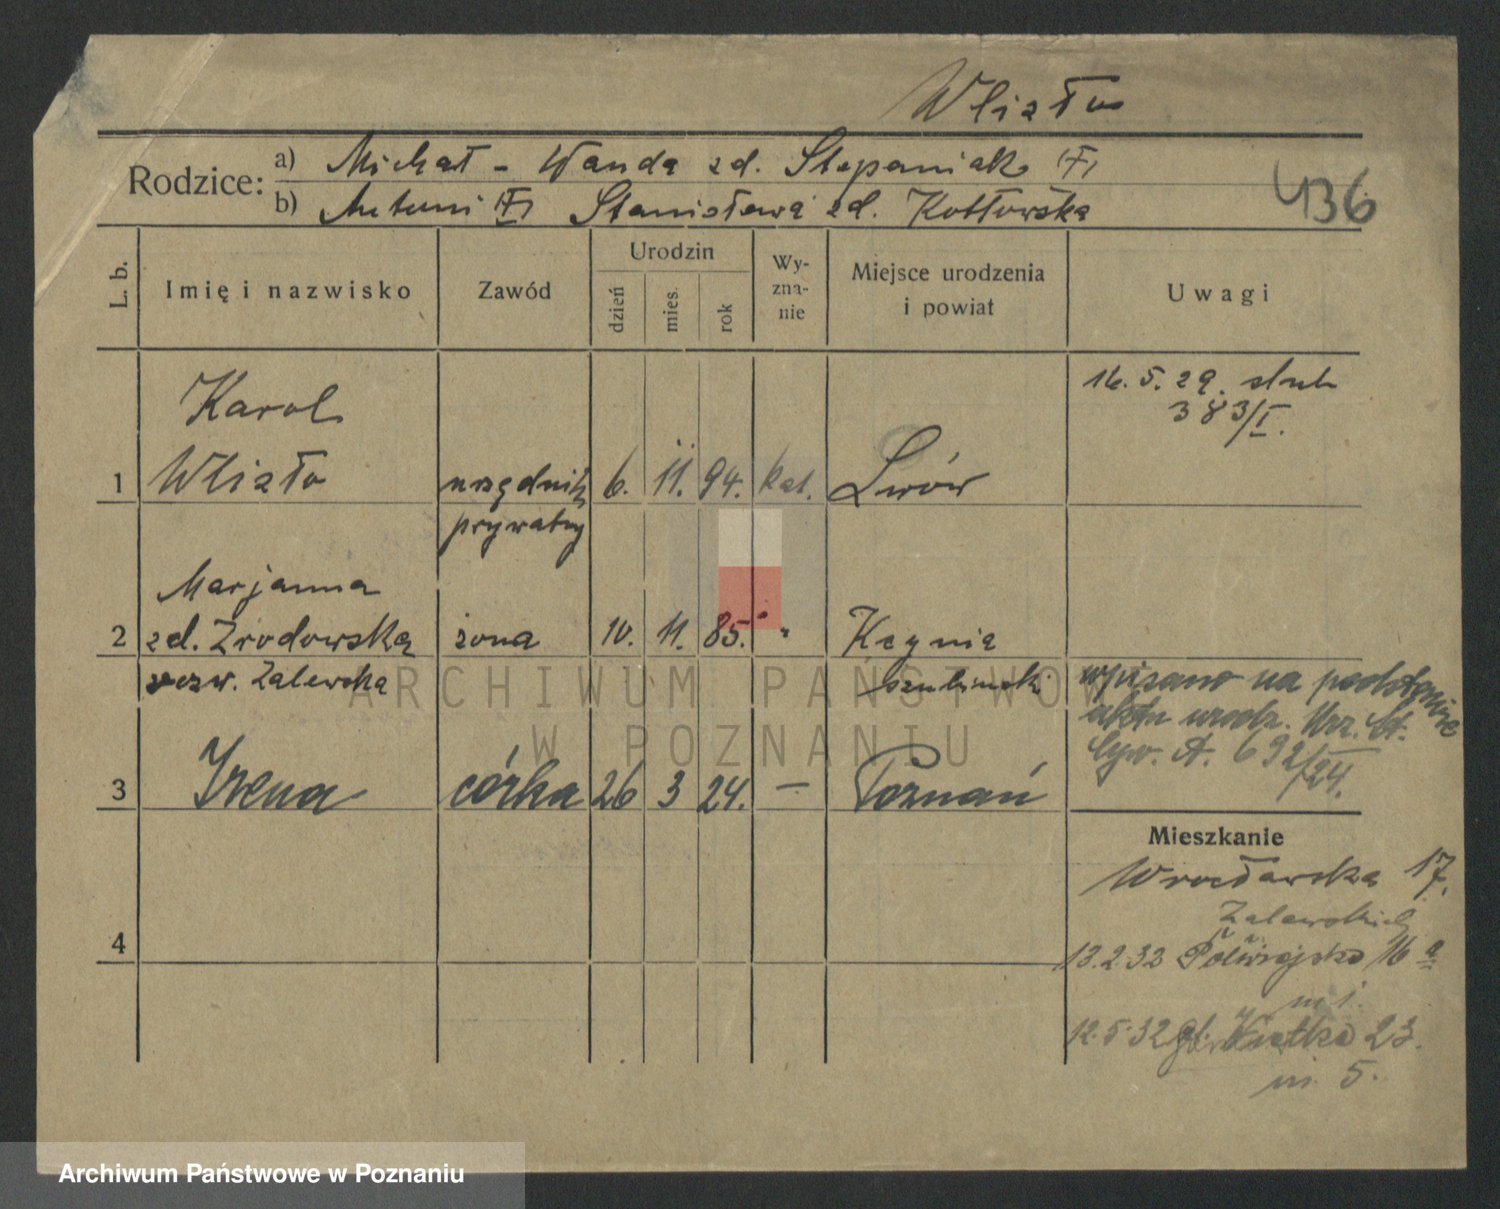 Wlizło
Rodzice: a) Michał - Wanda zd. Stepaniak (†)
b) Antoni (†) Stanisława zd. Kotłowska
436
L. b. Imię i nazwisko Zawód Urodzin dzień mies. rok Wy-zna-nie Miejsce urodzenia i powiat Uwagi
16. 5. 29. ślub
383/I.
Karol
1 Wlizło urzędnik 6. 11. 94. kat. Lwów
prywatny
Marjanna
2 zd. Zrodowska żona 10. 11. 85. " Kcynia
rozw. Zalewska szubiński
wpisano na podstawie
aktu urodz. Urz. St.
Cyw. A. 692/24.
3 Irena córka 26 3 24. — Poznań
Mieszkanie
Wrocławska 17.
Zalewskich
4
13.2.32 Półwiejska 16 a
m 1.
12.5.32 23.
m. 5.
ARCHIWUM PAŃSTWOWE
W POZNANIU
Archiwum Państwowe w Poznaniu